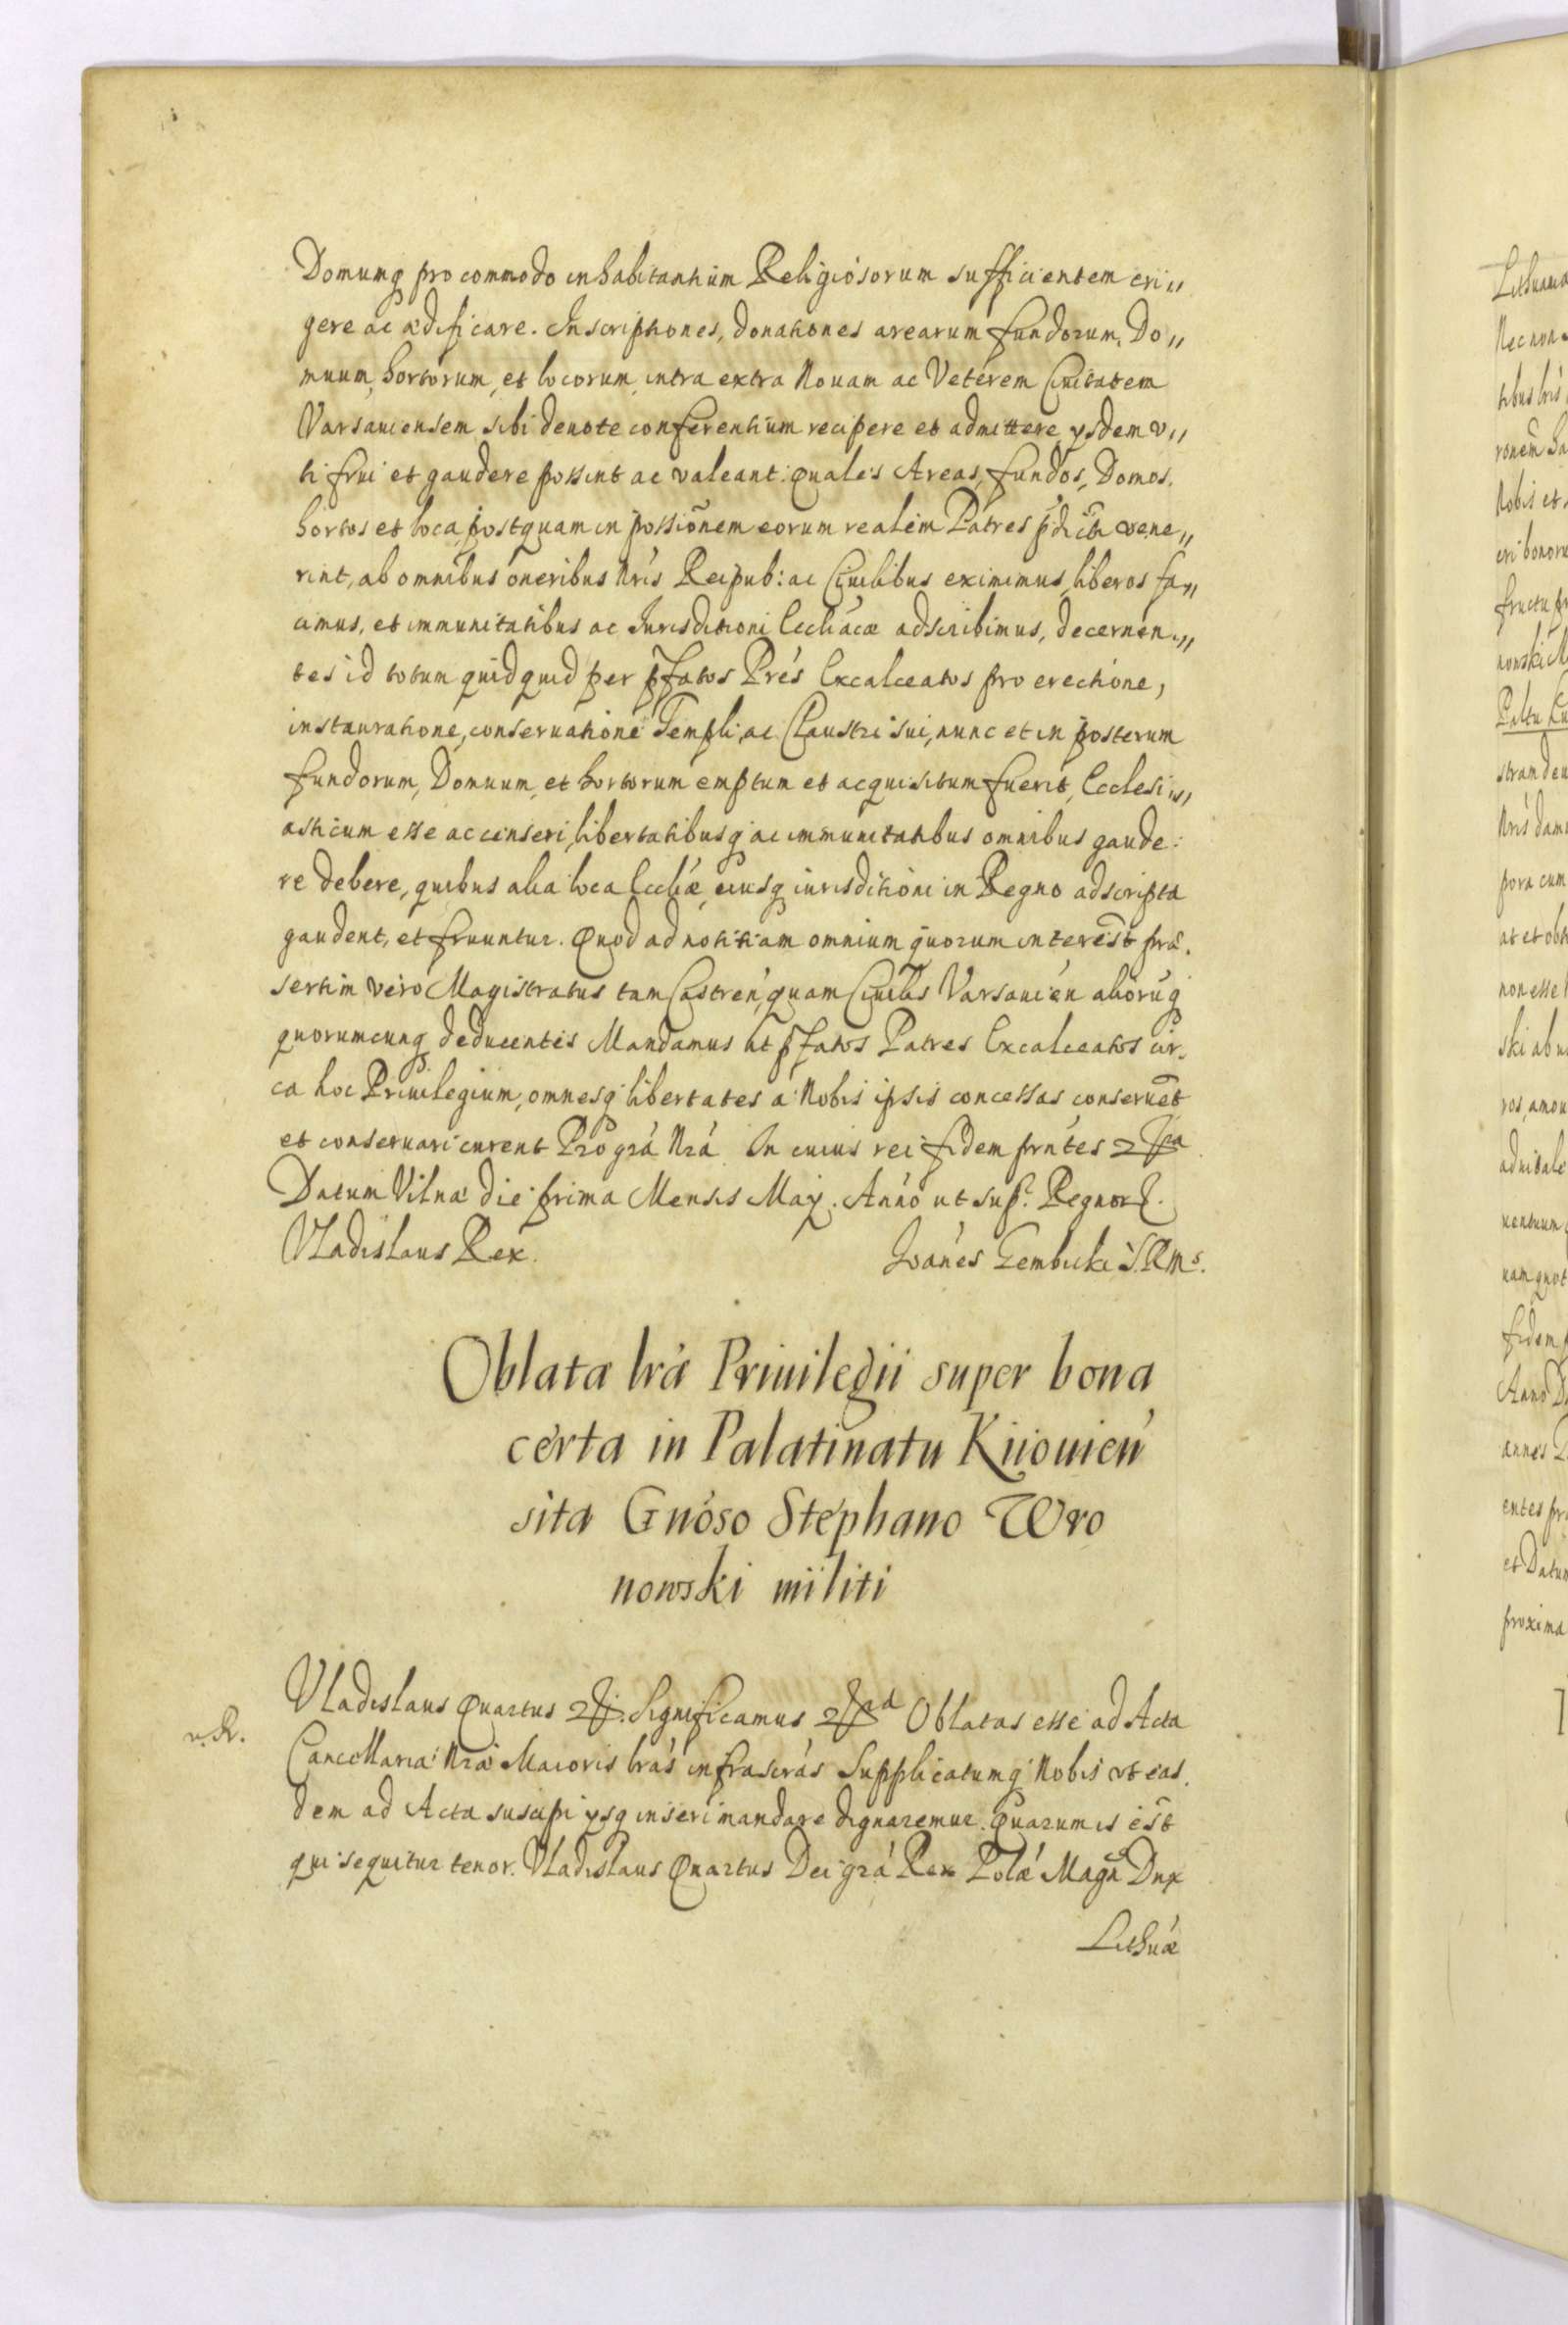 Domumq pro commodo inhabitantium Religiosorum sufficientem eri„
gere ac ædificare. Inscriptiones, donationes arearum fundorum, Do„
muum, hortorum, et locorum, intra extra Nouam ac Veterem Ciuitatem
Varsauiensem sibi deuote conferentium recipere et admittere ysdem v„
ti frui et gaudere possint ac valeant. Quales Areas, fundos, Domos,
hortos et loca, postquam in possiōnem eorum realem Patres pdicti vene„
rint, ab omnibus oneribus Nris Reipub: ac Ciuilibus eximimus, liberos fa„
cimus, et immunitatibus ac Iurisditioni Eccliácæ adscribimus, decernen„
tes id totum quidquid per pfatos Pres Excalceatos pro erectione,
instauratione, conseruatione Templi, ac Claustri sui, nunc et in posterum
fundorum, Domuum, et hortorum emptum et acquisitum fuerit, Ecclesi„
asticum esse ac censeri, libertatibusq ac immunitatibus omnibus gaude:
re debere, quibus alia loca Eccliæ, eiusq iurisditioni in Regno adscripta
gaudent, et fruuntur. Quod ad notitiam omnium quorum interest præ.
sertim vero Magistratus tam Castren, quam Ciuilis Varsauien aliorúq
quorumcunq deducentes Mandamus ut pfatos Patres Excalceatos cir.
ca hoc Priuilegium, omnesq libertates a Nobis ipsis concessas conseruēt
et conseruari curent Pro grá Nrá In cuius rei fidem prntes
Datum Vilnæ die prima Mensis Maÿ. Anno ut sup. Regnor.
Vladislaus Rex.
Ioanes Gembicki S. R. Ms.
Oblatæ lræ Priuilegii super bona
certa in Palatinatu Kiiouień
sita Gnóso Stephano Wro
nowski militi
Vladislaus Quartus Significamus Oblatas esse ad Acta
v. R.
Cancellariæ Nræ Maioris lras infrascras Supplicatumq Nobis vt eas.
dem ad Acta suscipi ysq inseri mandare dignaremur. Quarum is est
qui sequitur tenor. Vladislaus Quartus Dei grá Rex Polæ Mag Dux
Lithuæ